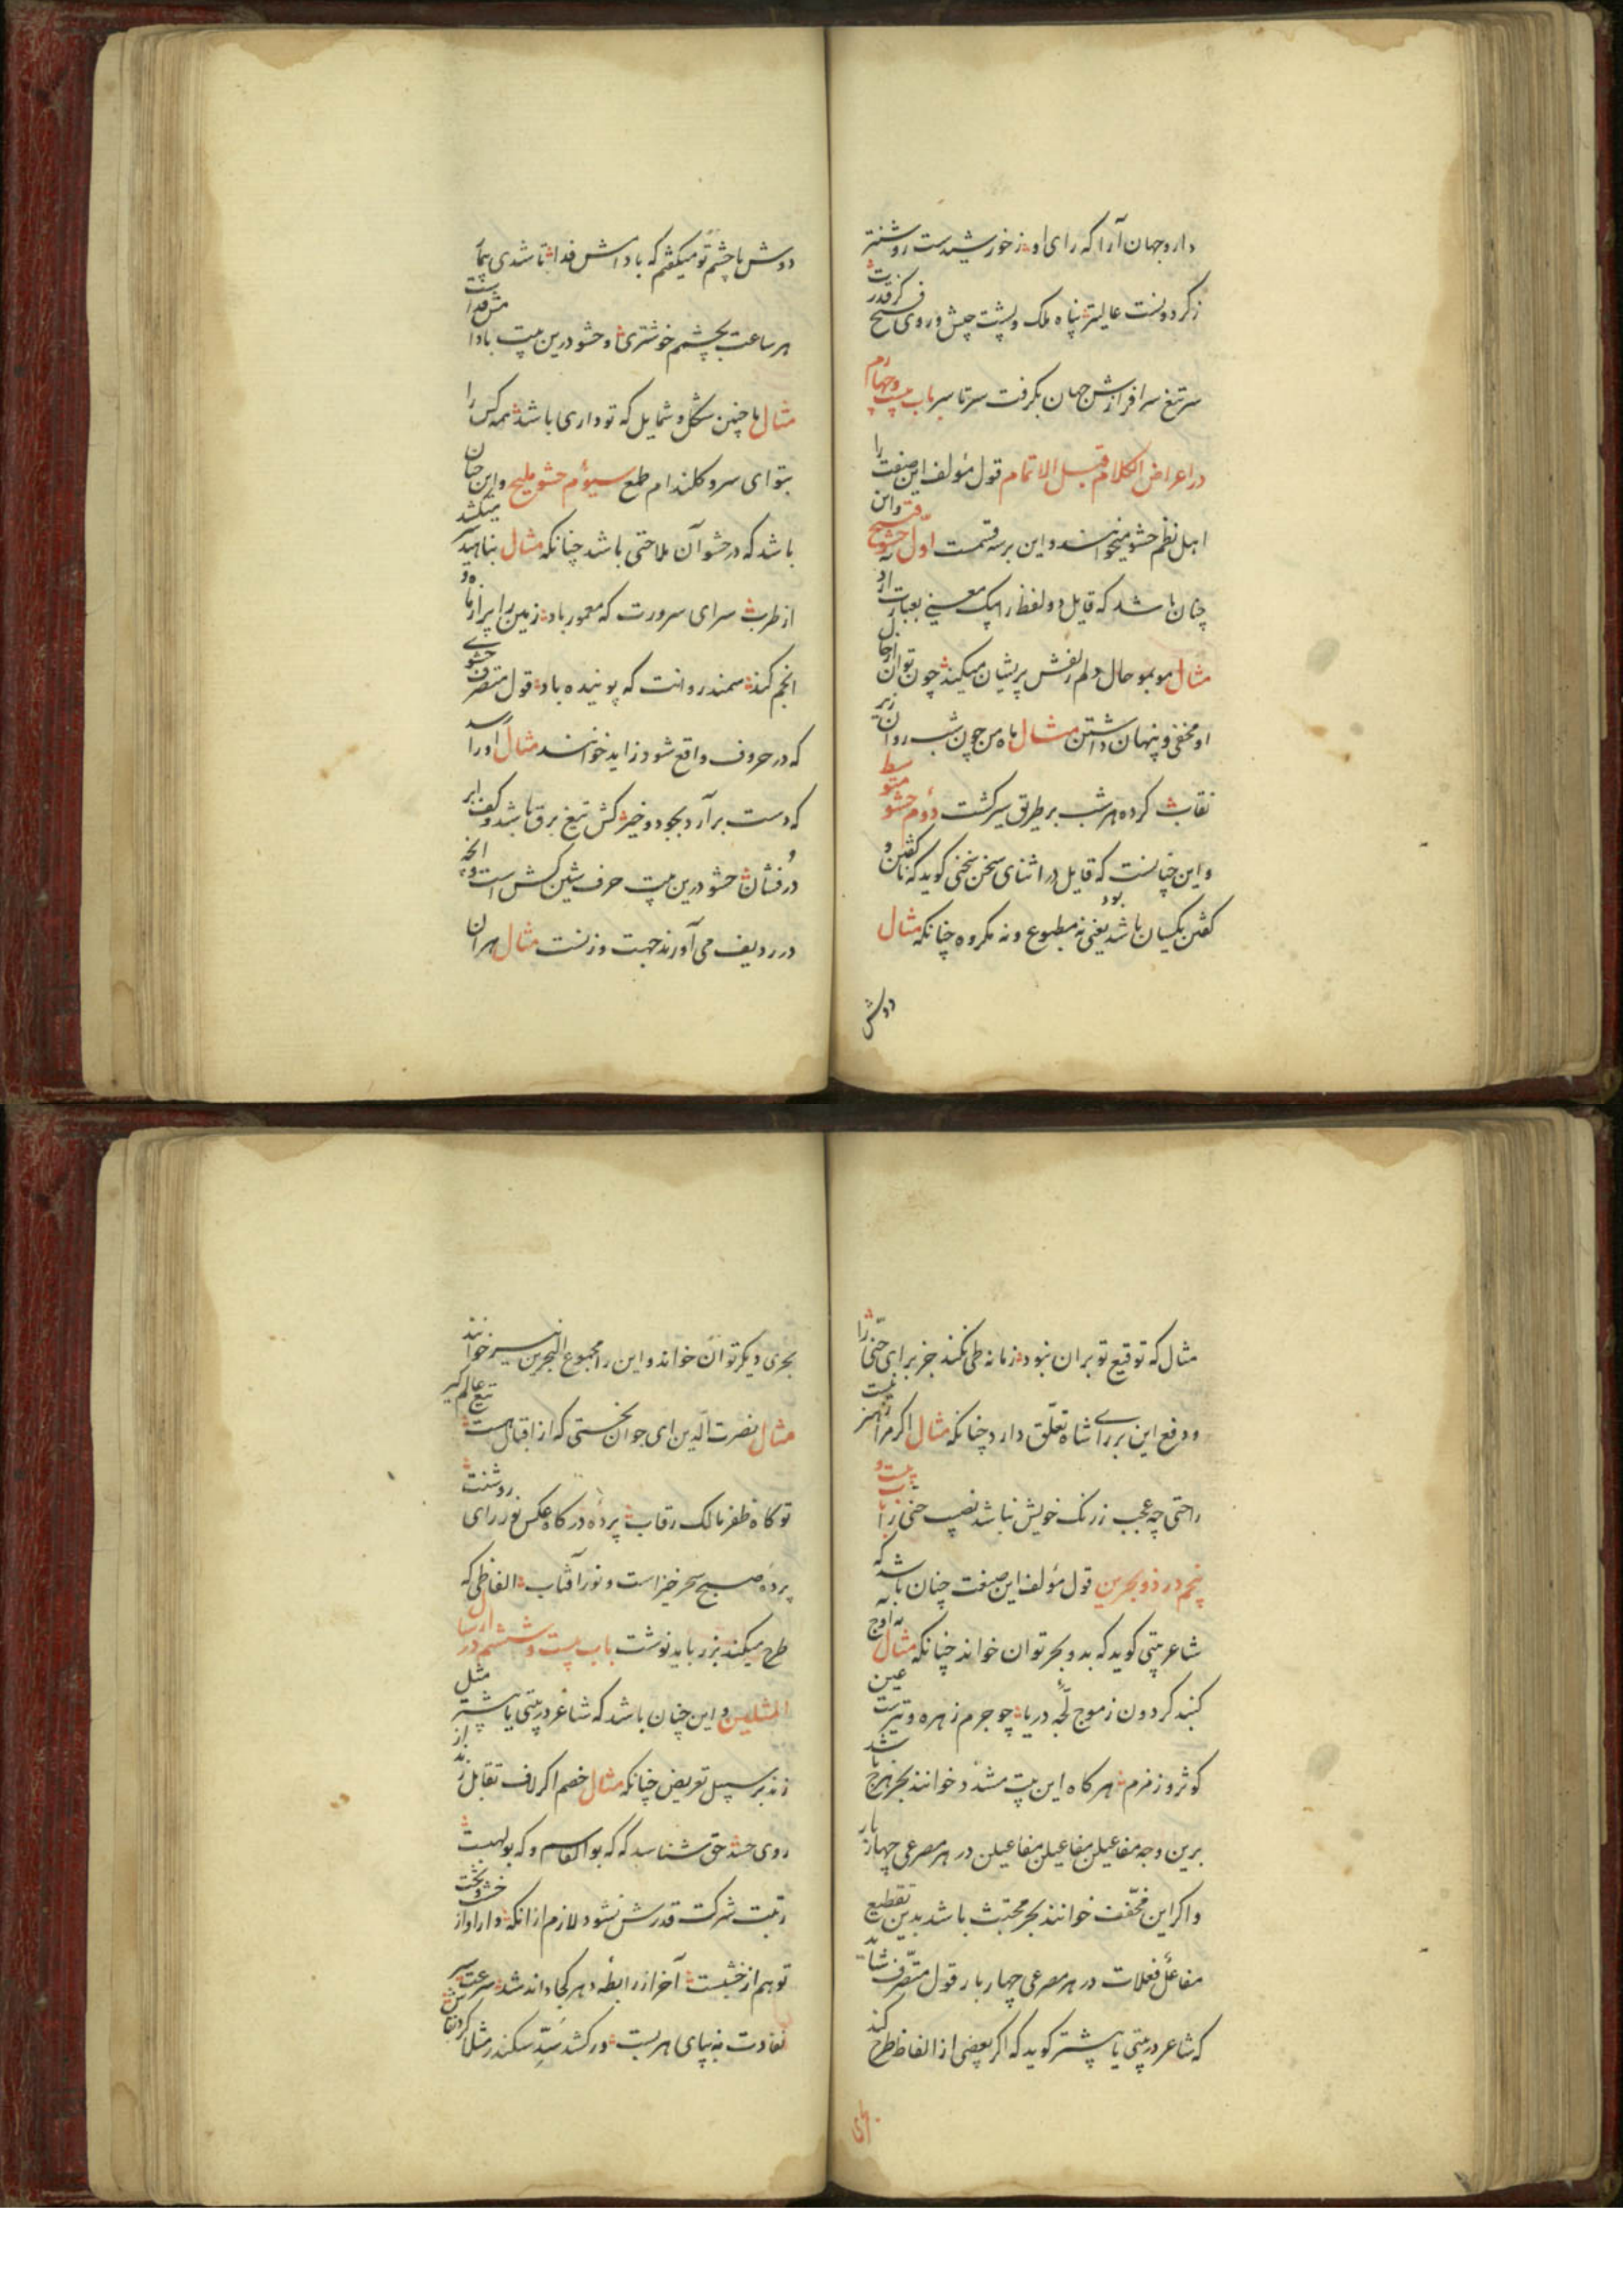 دارو جهان آرا که رای او ز خورشیدست روشنتر
ز گردونست عالیتر پناه ملک و پشت جیش و روی فسح کز قدرت
سر تیغ سرافرازش جهان بگرفت سرتاسر باب بیست و چهارم
در اعراض الکلام قبل الاتمام قول مؤلف این صنعت را
اهل نظم حشو میخوانند و این بر سه قسمت اول حشو قبیح و این
چنان باشد که قایل دو لفظ را بیک معنی بعبارت آرد
مثال موبمو حال دلم زلفش پریشان میکند چون توان از حال
او مخفی و پنهان داشتن مثال ماه من چون شب روان زیر
نقاب کرده هر شب بر طریق سیر کشت دوم حشو متوسط
و این چنانست که قایل در اثنای سخن سخنی گوید که گفتن و نا
گفتن یکسان باشد یعنی نه مطبوع بود و نه مکروه چنانکه مثال
دوش
دوش با چشم تو میگفتم که بادامش فدا تا شدی بیمار
هر ساعت بچشم خوشتری او حشو درین بیت بادامش فداست
مثال با چنین شکل و شمایل که تو داری باشد همه کس را
بتو ای سرو گلندام طمع سیوم حشو ملیح و این چنان
باشد که در حشو آن ملاحتی باشد چنانکه مثال بناهید میکشد
از طرب سرای سرورت که معمور باد زمین را پر از ماه و
انجم کند سمند روانت که پوینده باد قول متصرف حشوی
که در حروف واقع شود زاید خوانند مثال او را رسد
که دست برآرد بجود و خیر کش تیغ برق باشد و کف ابر
درفشان حشو درین بیت حرف شین کش است و آنچه
در ردیف می آورند جهت وزنست مثال هر آن
مثال که توقیع تو بر آن نبود زمانه طی نکند جز برای حنی را
و دفع این برای شاه تعلق دارد چنانکه مثال اگر مرا ز هنر نیست
راحتی چه عجب ز رنگ خویش نباشد نصیب حنی را باب بیست و
پنجم در ذو بحرین قول مؤلف این صنعت چنان باشد که
شاعر بیتی گوید که بدو بحر توان خواند چنانکه مثال به اوج
گنبد گردون ز موج لجه دریا چو جرم زهره و تیرست عین
کوثر و زمزم هر گاه این بیت مشدد خوانند بحر هزج باشد
برین وجه مفاعیلن مفاعیلن مفاعیلن در هر مصرعی چهار بار
و اگر این مخفف خوانند بحر مجتث باشد بدین تقطیع
مفاعلن فعلات در هر مصرعی چهار بار قول متصرف شاید
که شاعر در بیتی یا بیشتر گوید که اگر بعضی از الفاظ طرح کند
بحری دیگر توان خواند و این را مجموع البحرین نیز خوانند
مثال نصرت الدین ای جوان بختی که از اقبال هست تیغ عالم گیر
تو گاه ظفر مالک رقاب پرده درگاه عکس نور رای روشنت
پرده صبح سحر خیز است و نور آفتاب الفاظی که
طرح میکند بزر باید نوشت باب بیست و ششم در ارسال
المثلین و این چنان باشد که شاعر در بیتی یا بیشتر مثل
زند بر سبیل تعریض چنانکه مثال خصم اگر لاف تقابل زند از
روی حسد حق شناسد که که بوالقاسم و که بولهبست
رتبت شرکت قدرش نشود لازم از آنکه دارد او از خشب و نخت
تو هم از خشبست آخر از رابطه دهر کجا داند شد سرعت سیر
نفاذت نه بپای هر بست در کشد سد سکندر مثلا گرد بقاش